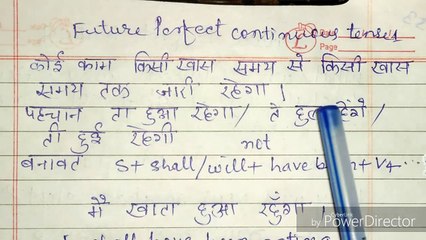 Future Perfect continuous tenses
Page
कोई काम किसी खास समय से किसी खास
समय तक जारी रहेगा।
पहचान ता हुआ रहेगा/ ते हुए रहेंगे/
ती हुई रहेगी
not
बनावट S+shall/will+have been+V4...
मैं खाता हुआ रहूँगा।
I shall have been eating
Made with
PowerDirector